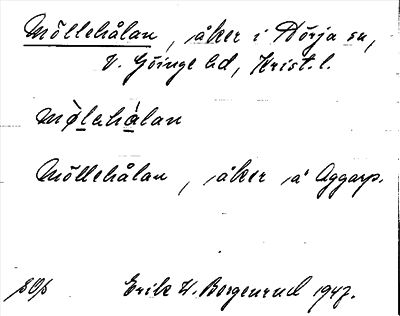 Möllehålan, åker i Dörja sn,
V. Göinge hd, Krist. l.
mø̀lahålan
Möllehålan, åker å Aggarp.
Erik W. Borgenrud 1947.